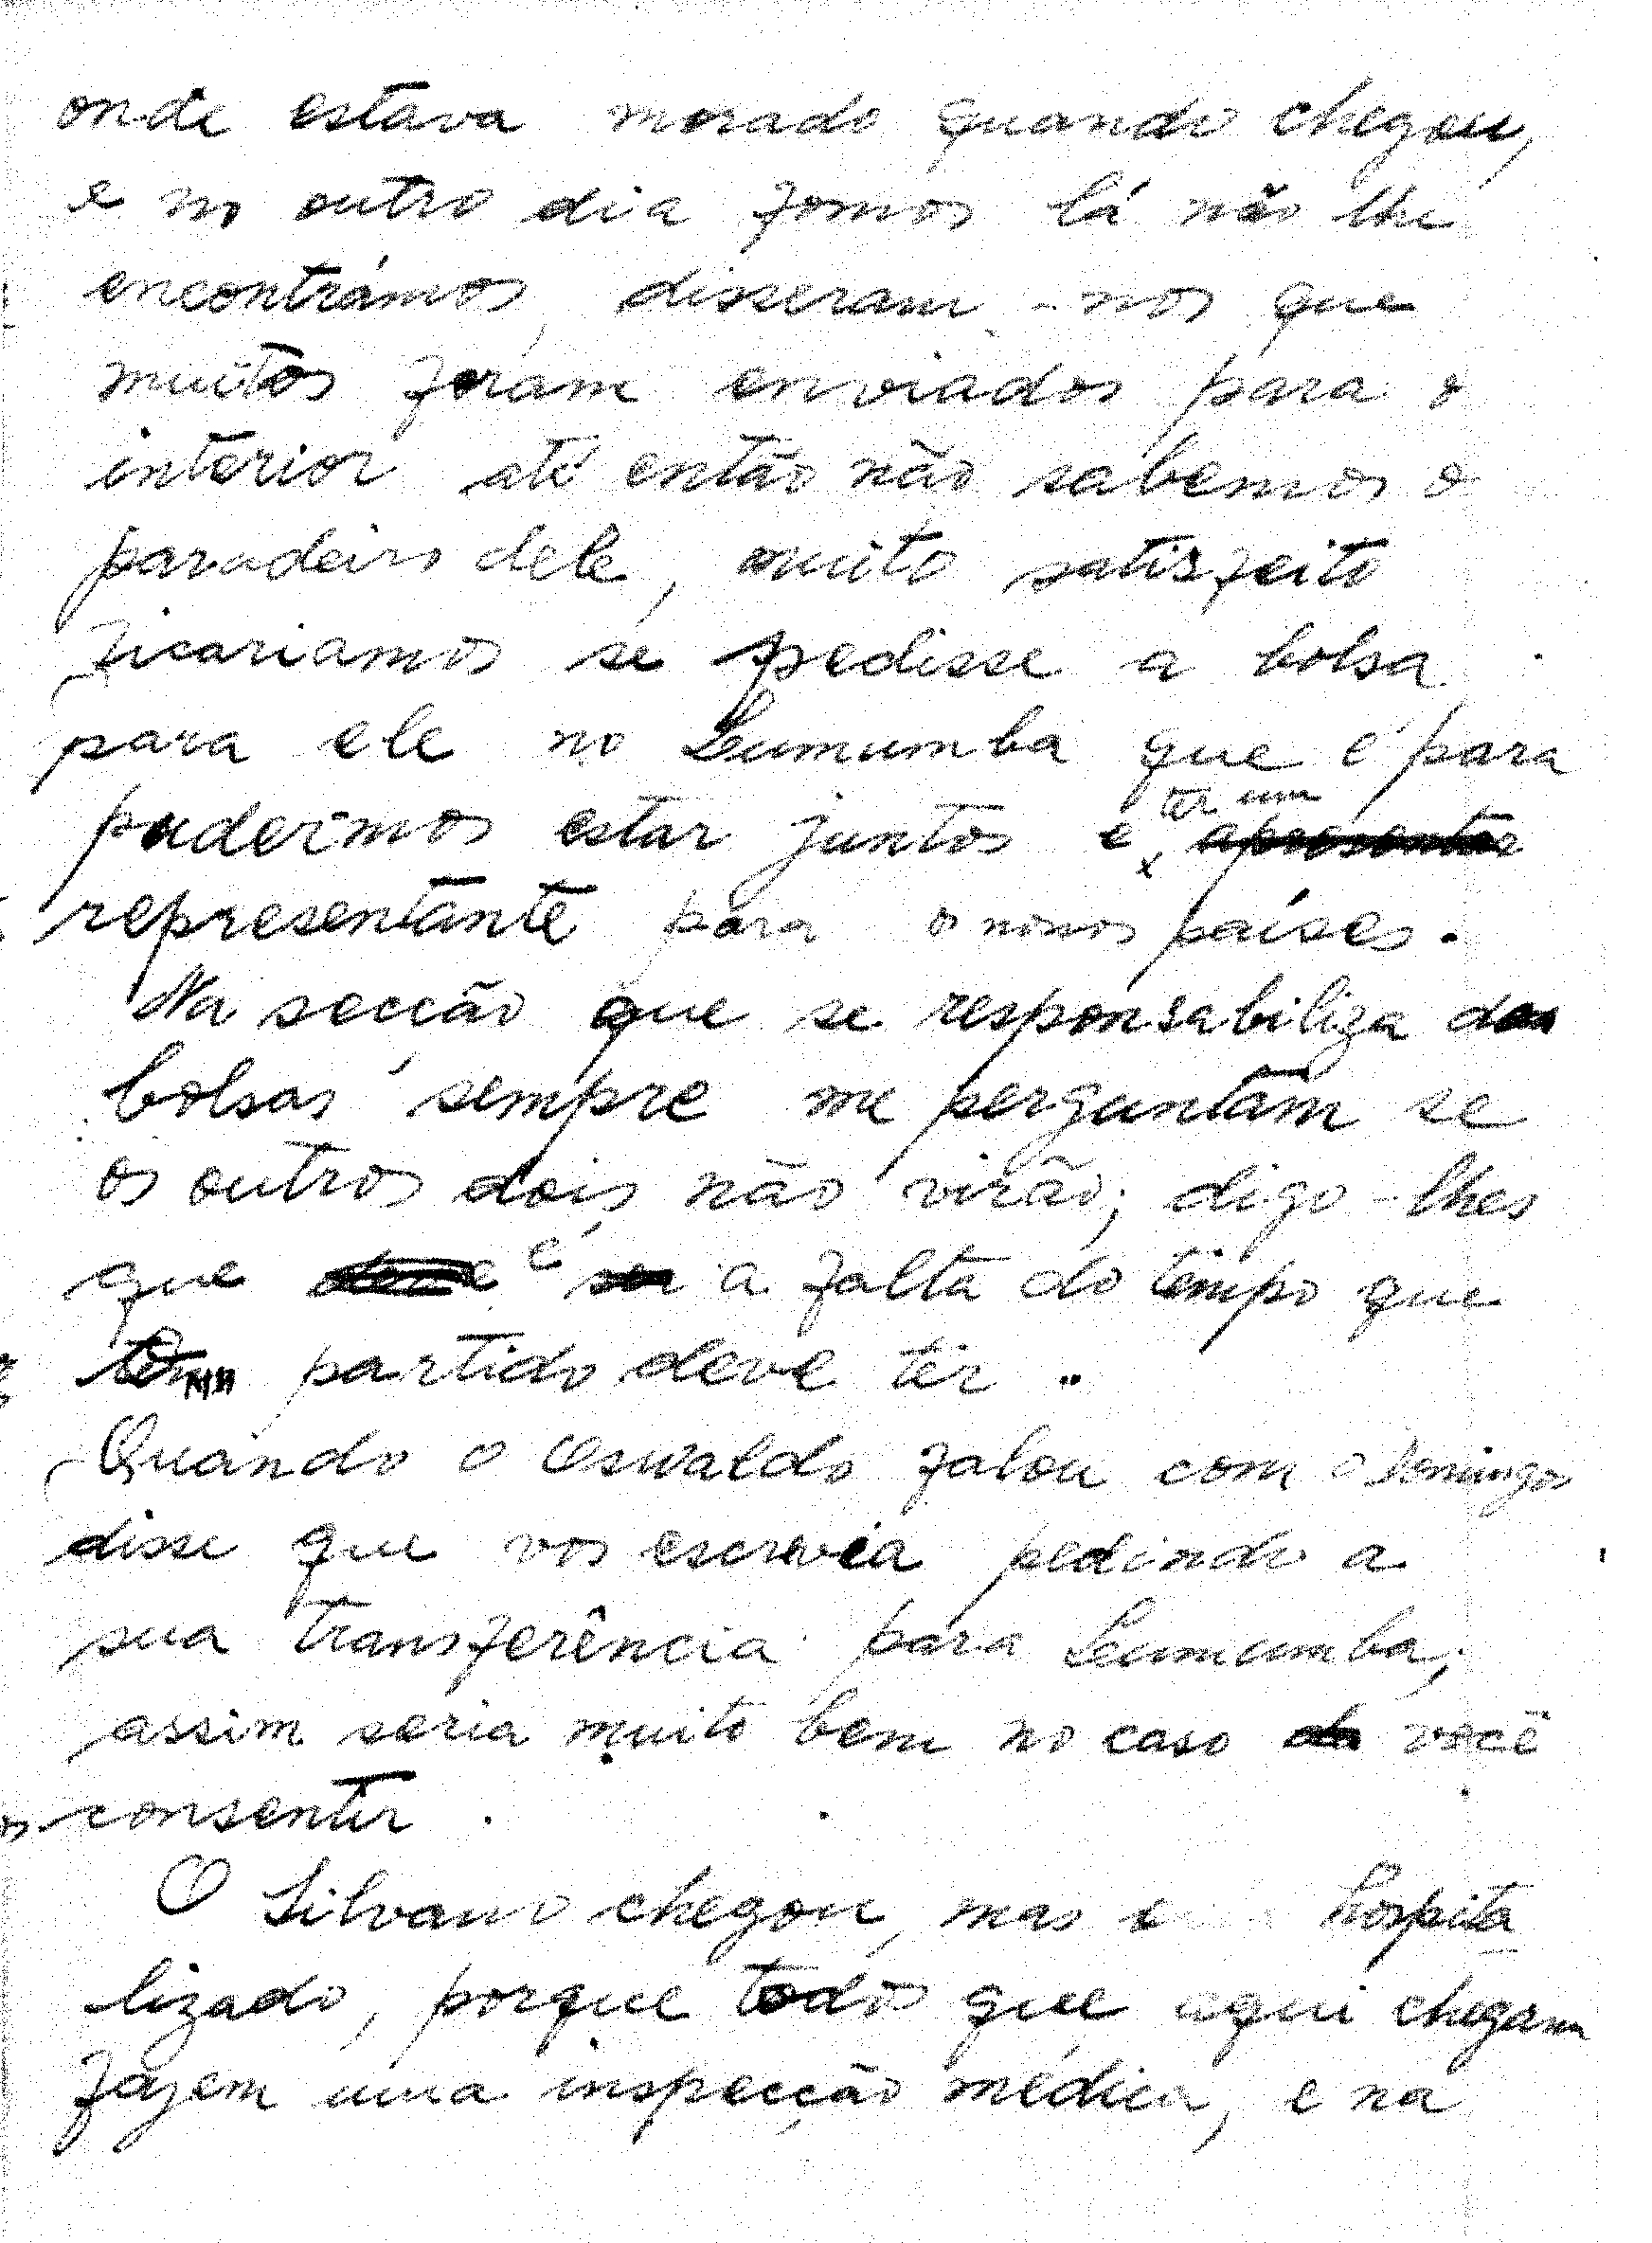 onde estava morado quando chegou,
e no outro dia fomos lá não lhe
encontrámos, disseram-nos que
muitos foram enviados para o
interior até então não sabemos o
paradeiro dele, muito satisfeito
ficariamos se pedisse a bolsa
para ele no Lumumba que é para
pudermos estar juntos e ter um
representante para o nosos países.
Na secção que se responsabiliza das
bolsas, sempre me perguntam se
os outros dois não virão; digo-lhes
que é a falta do tempo que
partido deve ter.
Quando o Oswaldo falou com o Domingos
disse que vos escrevia pedindo a
sua transferência para Lumumba,
assim seria muito bem no caso de você
consentir.
O Silvano chegou, mas e hospita
lizado, porque todos que aqui chegam
fazem uma inspecção médica, e na